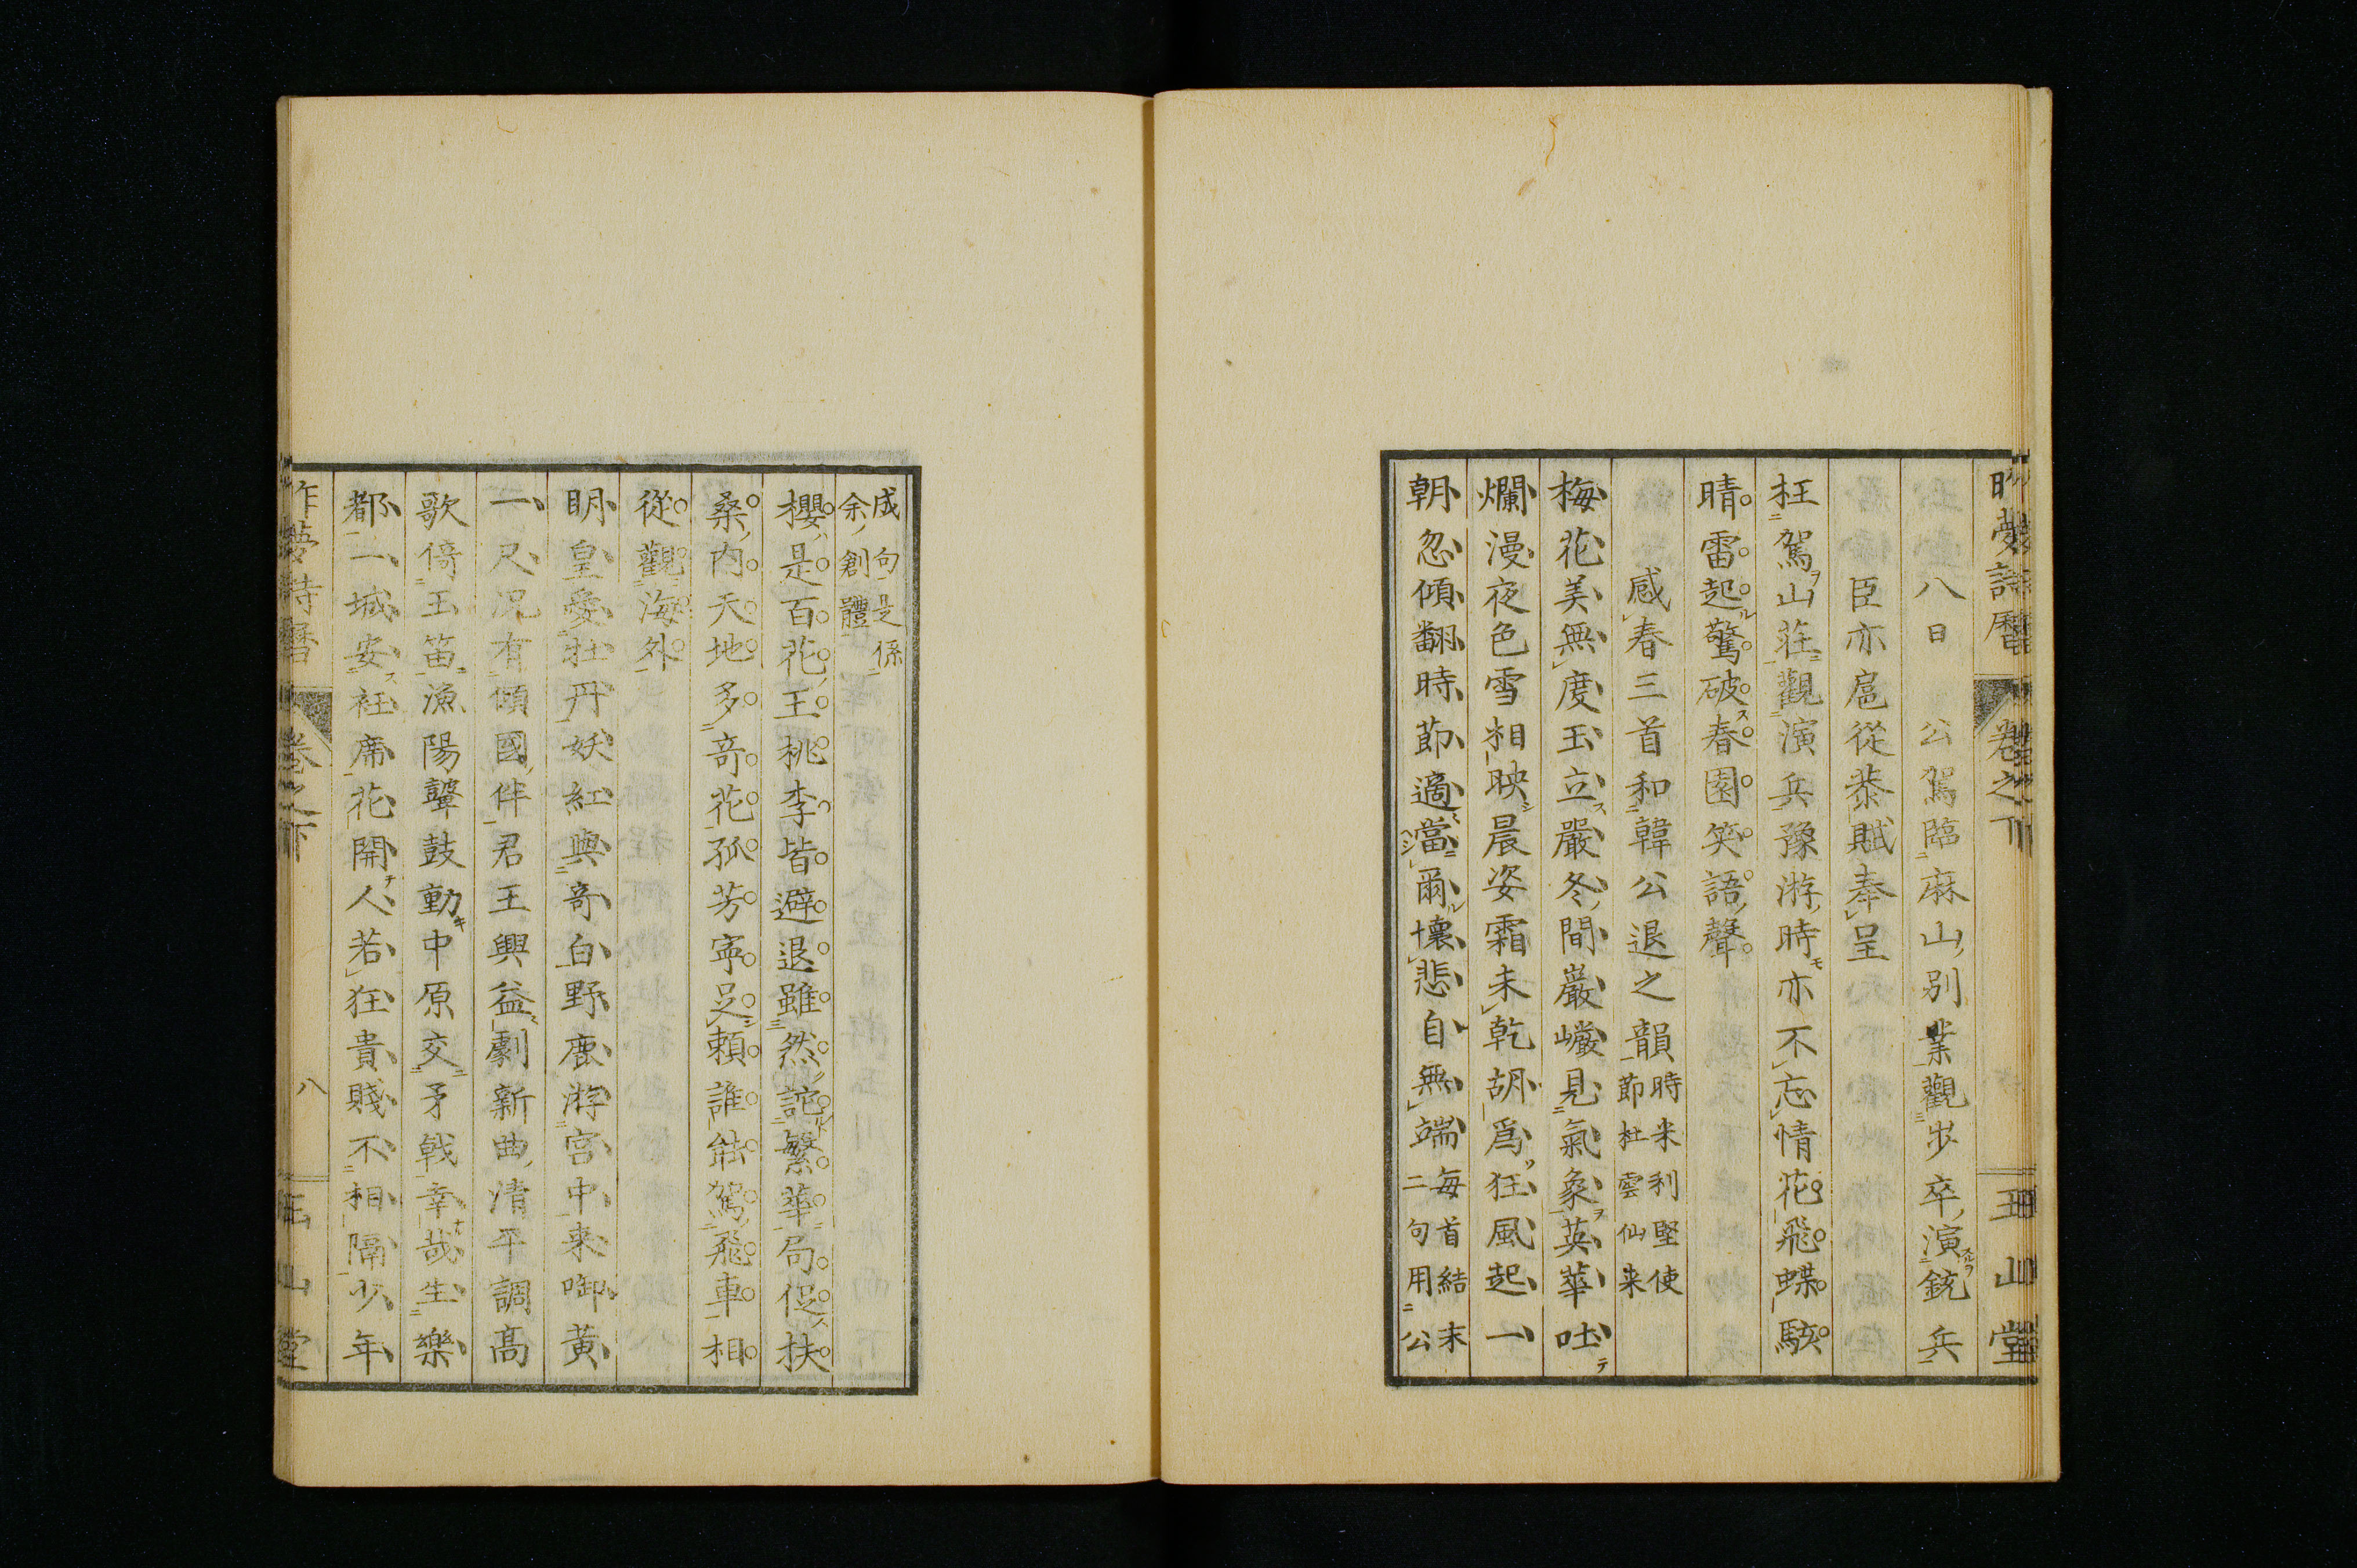 昨夢詩曆 卷之下 玉山堂
八日 公駕臨麻山別業觀步卒演銃兵
臣亦扈從恭賦奉呈
枉駕山莊觀演兵豫游時亦不忘情花飛蝶駭
晴雷起驚破春園笑語聲
感春三首和韓公退之韻時米利堅使節杜雲仙来
梅花美無度玉立嚴冬間巖巉見氣象英華吐
爛漫夜色雪相映晨姿霜未乾胡爲狂風起一
朝忽傾翻時節適當爾懷悲自無端每首結末二句用公
成句是係余創體
櫻是百花王桃李皆避退雖然詫繁華局促扶
桑内天地多奇花孤芳寧足賴誰能駕飛車相
從觀海外
明皇愛牡丹妖紅與奇白野鹿游宮中来啣黃
一尺況有傾國伴君王興益劇新曲清平調高
歌倚玉笛漁陽鼙鼓動中原交矛戟幸哉生樂
都一城安衽席花開人若狂貴賤不相隔少年
昨夢詩曆 卷之下 八 玉山堂